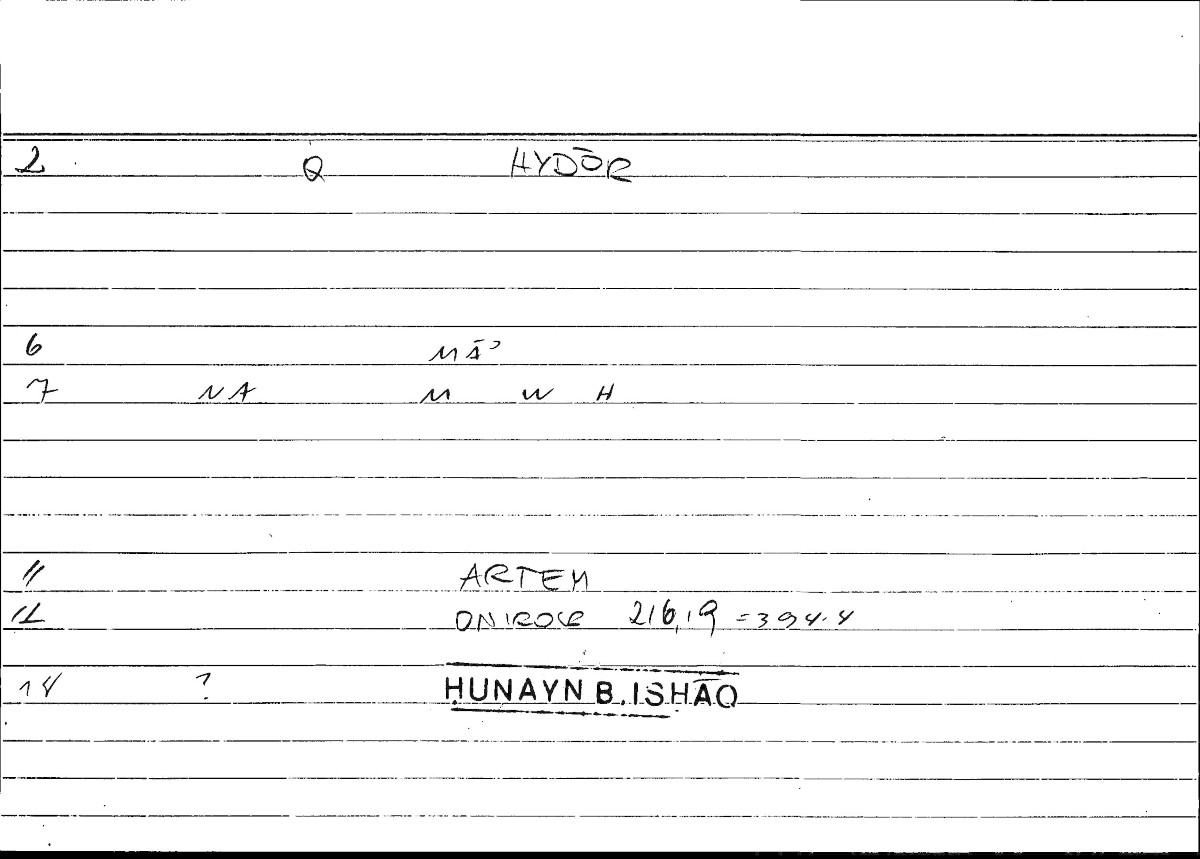 2 Q HYDŌR
6 MĀʾ
7 NA M W H
11 ARTEM
12 ONIROCR 216,19 = 394.4
14 ? ḤUNAYN B. ISḤĀQ